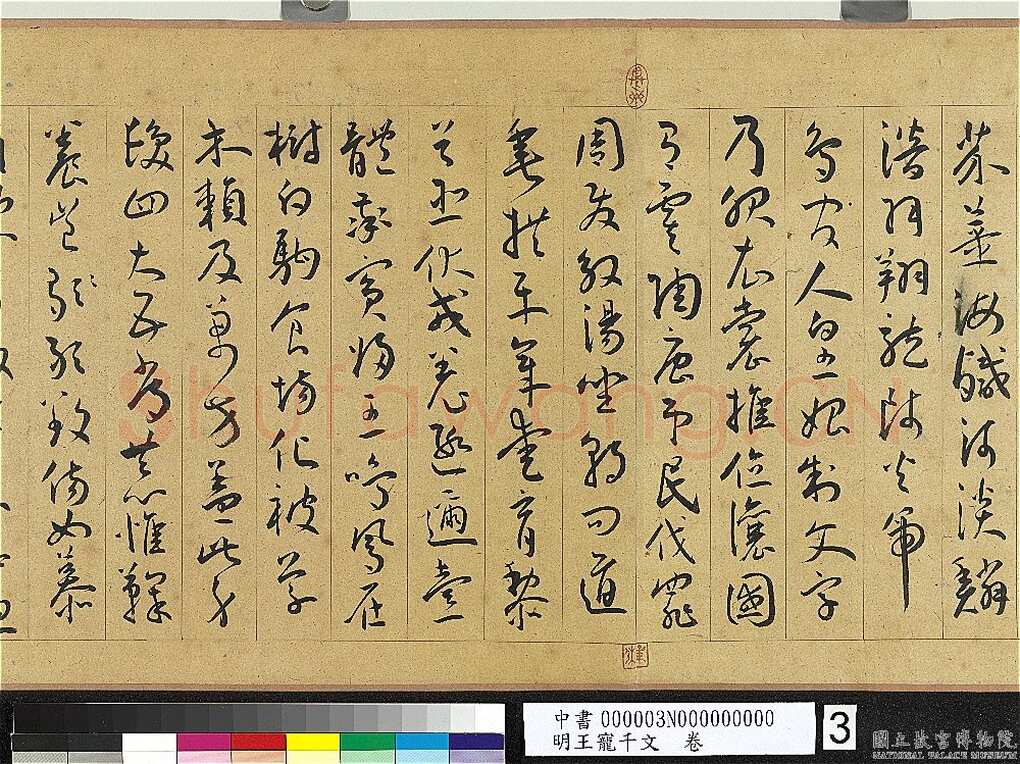 芥薑海鹹河淡鱗
潛羽翔龍師火帝
鳥官人皇始制文字
乃服衣裳推位讓國
有虞陶唐弔民伐罪
周發殷湯坐朝問道
垂拱平章愛育黎
首臣伏戎羌遐邇壹
體率賓歸王鳴鳳在
樹白駒食場化被草
木賴及萬方蓋此身
髮四大五常恭惟鞠
養豈敢毀傷女慕
ShufawangCN
中書 000003N000000000
明王寵千文 卷
3
國立故宮博物院
NATIONAL PALACE MUSEUM